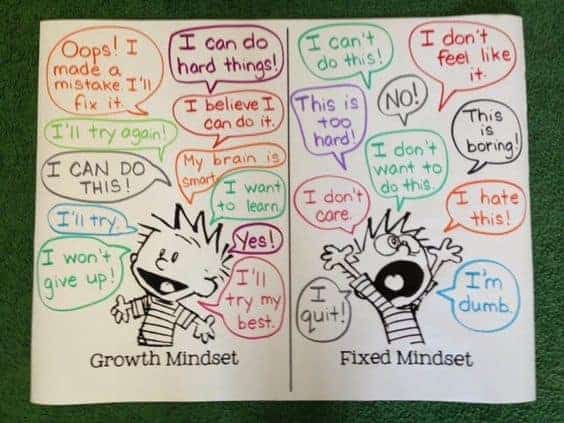 Oops! I
made a
mistake I'll
fix it.
I can do
hard things!
I believe I
can do it.
I'll try again!
My brain is
smart.
I CAN DO
THIS!
I want
to learn.
I'll try.
Yes!
I won't
give up!
I'll
try my
best.
Growth Mindset
I can't
do this!
I don't
feel like
it.
NO!
This is
too
hard!
This
is
boring!
I don't
want to
do this.
I don't
care.
I hate
this!
I
quit!
I'm
dumb.
Fixed Mindset